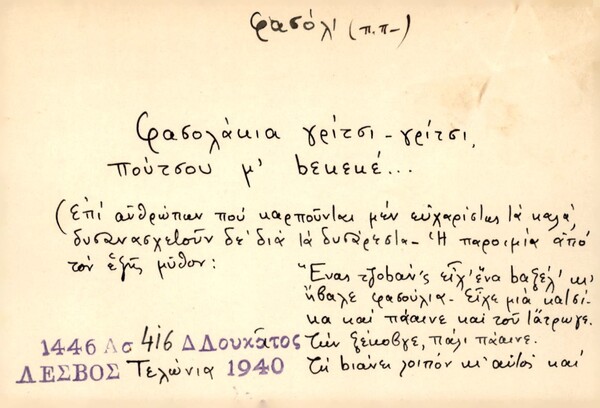 φασόλι (π.π-)
Φασολάκια γρίτσι-γρίτσι,
πούτσου μ' bεκεκέ...
(Ἐπί ἀνθρώπων πού καρποῦνται μέν εὐχαρίστως τά καλά,
δυσανασχετοῦν δέ διά τά δυσάρεστα - Ἡ παροιμία ἀπό
τόν ἑξῆς μῦθον:
Ἕνας τζοbάν'ς εἶχ' ἕνα bαξέλ' κι'
ἤβαλε φασούλια - Εἶχε μιά κατσί-
κα καί πάαινε καί τοῦ τἄτρωγε.
Τήν ξέκοβγε, πάλι πάαινε.
Τή bιάνει λοιπόν κι' αὐτός καί
1446 Λσ 416 Δ Λουκᾶτος
ΛΕΣΒΟΣ Τελώνια 1940